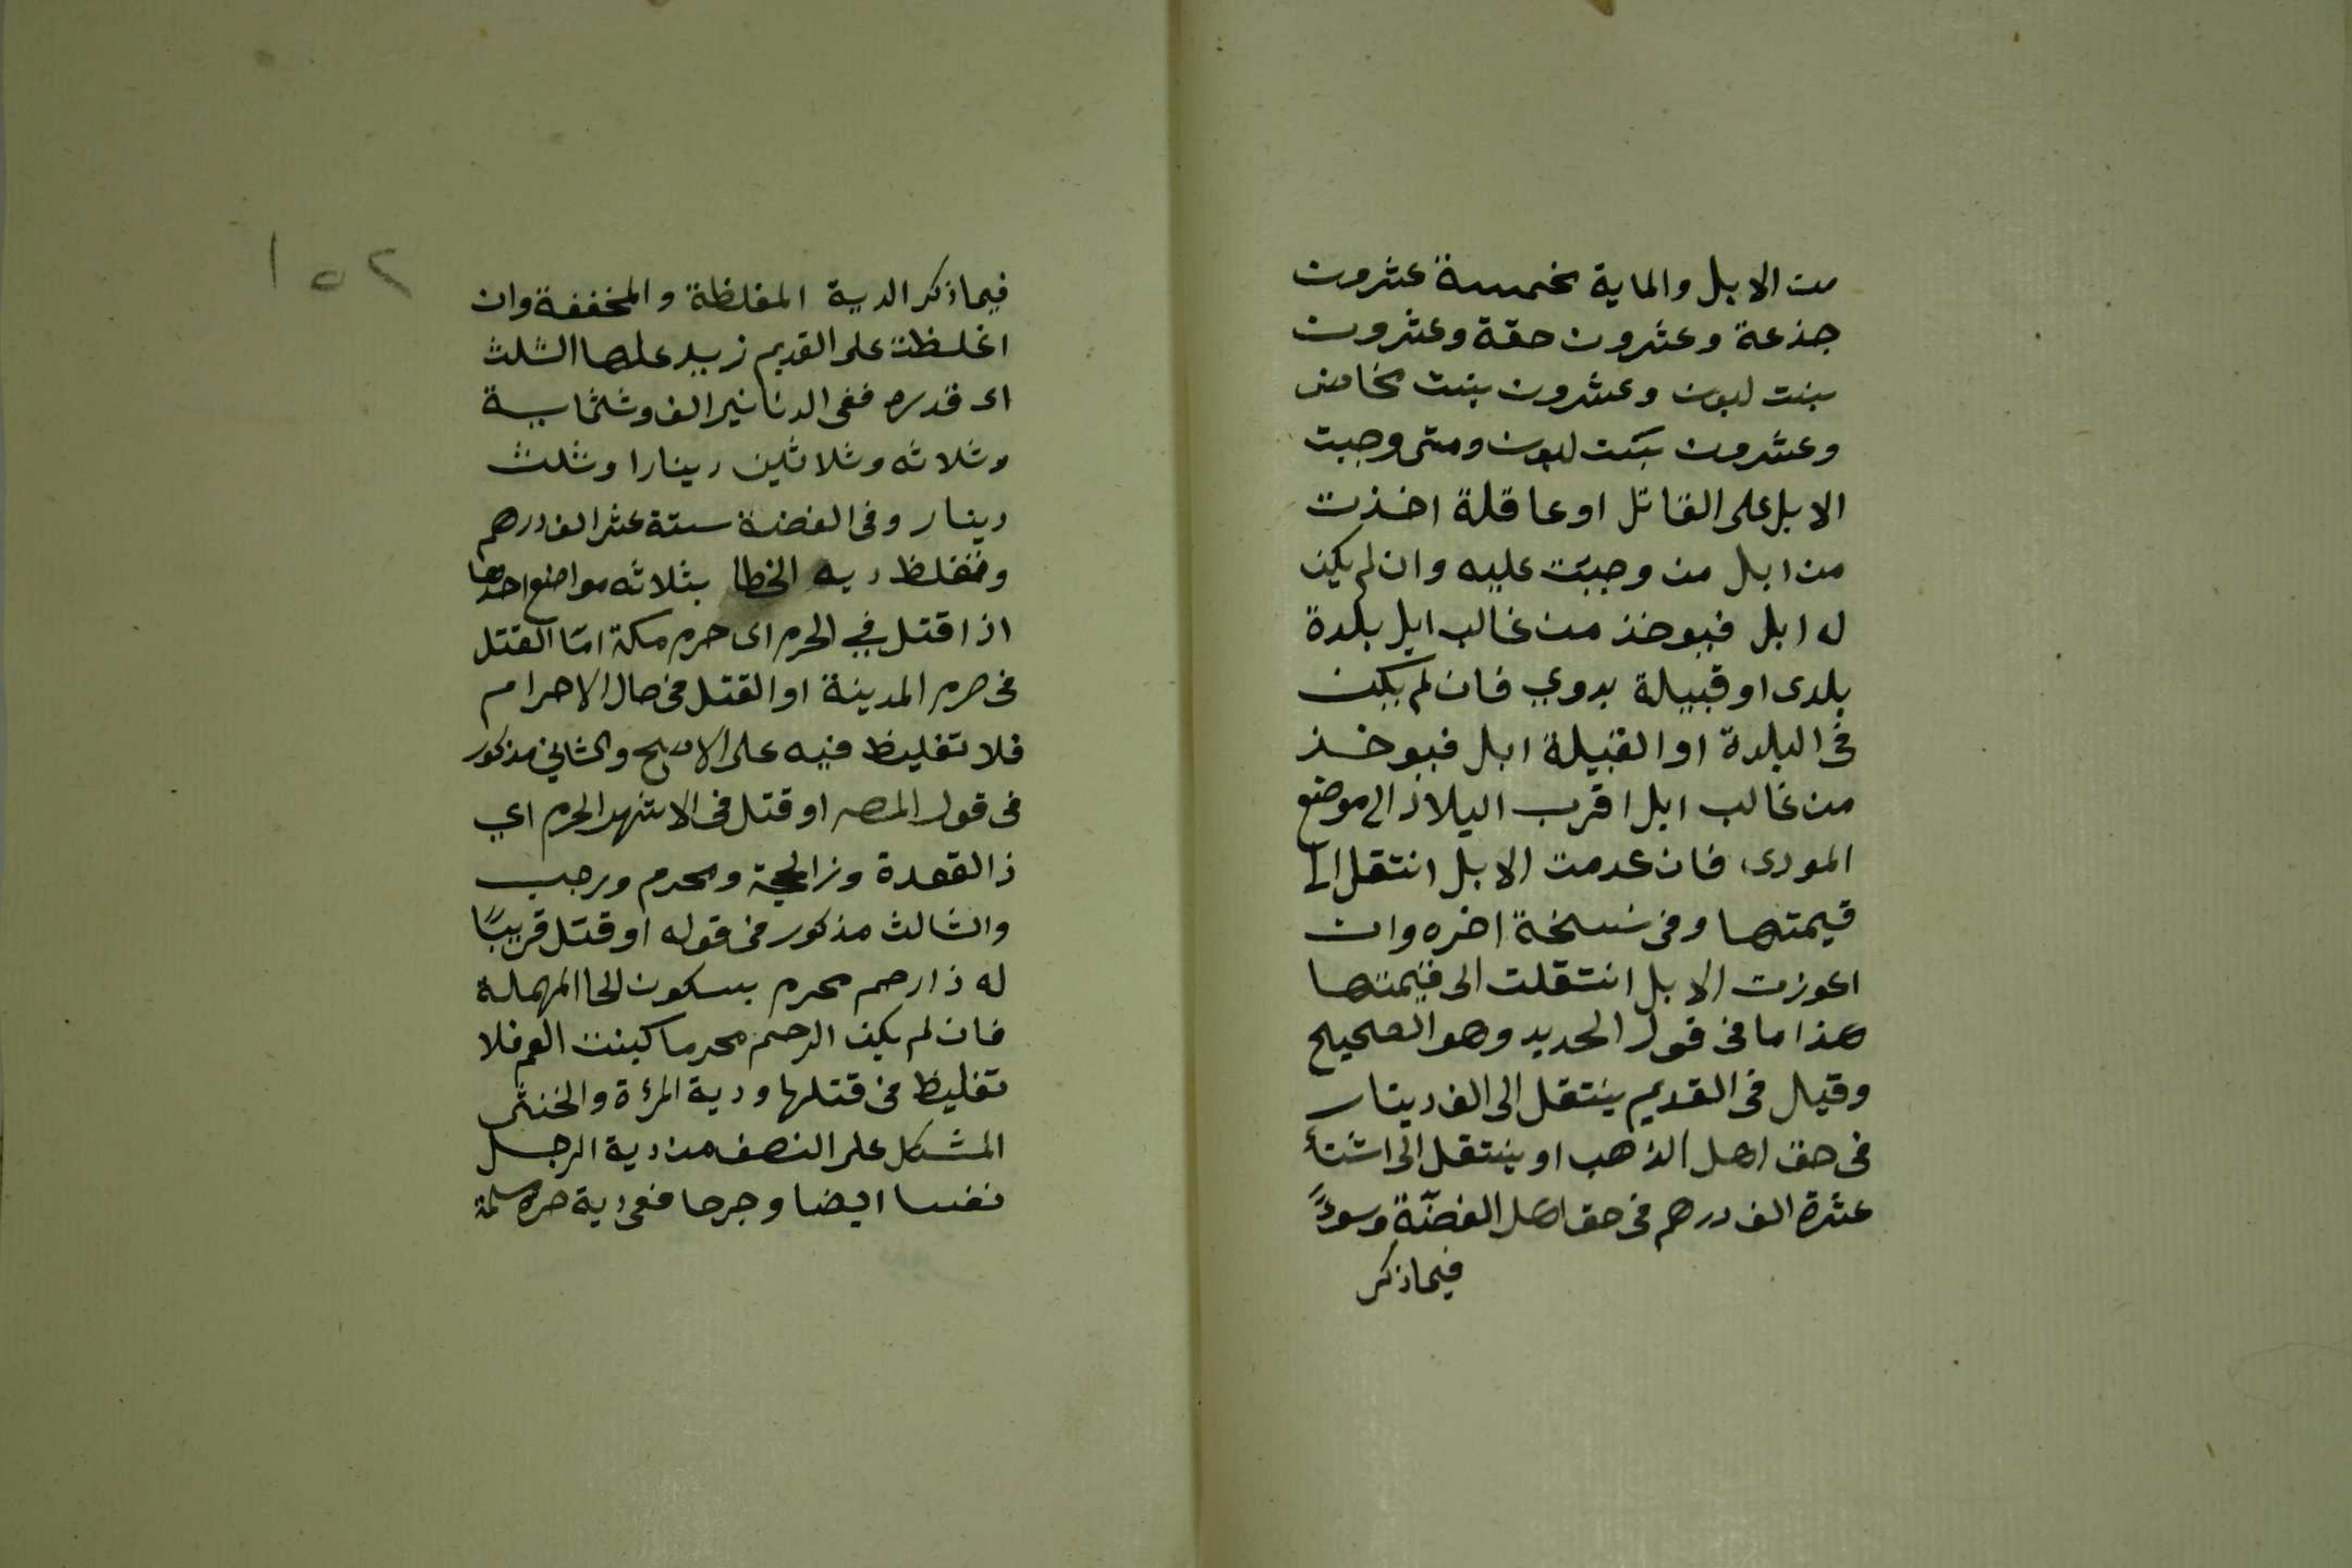 من الابل والماية مخمسة عشرون
جذعة وعشرون حقة وعشرون
بنت لبون وعشرون بنت مخاض
وعشرون بنت لبون ومتى وجبت
الابل على القاتل او عاقلة اخذت
من ابل من وجبت عليه وان لم يكن
له ابل فيوخذ من غالب ابل بلدة
بلدى او قبيلة بدوي فان لم يكن
فى البلدة او القبيلة ابل فيوخذ
من غالب ابل اقرب البلاد الى موضع
المودى فان عدمت الابل انتقل الى
قيمتها وفى نسخة اخره وان
اعوزت الابل انتقلت الى قيمتها
هذا ما فى قول الجديد وهو الصحيح
وقيل فى القديم ينتقل الى الف دينار
فى حق اهل الذهب او ينتقل الى اثنتا
عشرة الف درهم فى حق اهل الفضة وسوءً
فيما ذكر
١٥٢
فيما ذكر الدية المغلظة والمخففة وان
اغلظت على القديم زيد عليها الثلث
اى قدره ففى الدنانير الف وثلثماية
وثلاثه وثلاثين دينارا وثلث
دينار وفى الفضة ستة عشر الف درهم
وتغلظ ديه الخطا بثلاثه مواضع احدها
اذا قتل في الحرم اى حرم مكة امّا القتل
فى حرم المدينة او القتل فى حال الاحرام
فلا تغليظ فيه على الاصح والثاني مذكور
فى قول المصـ او قتل فى الاشهر الحرم اي
ذا القعدة وذا الحجة ومحرم ورجب
والثالث مذكور فى قوله او قتل قريبًا
له ذا رحم محرم بسكون الحا المهملة
فان لم يكن الرحم محرما كبنت العم فلا
تغليظ فى قتلها ودية المرءة والخنثى
المشكل على النصف من دية الرجل
نفسا ايضا وجرحا ففى دية حره مسلمة